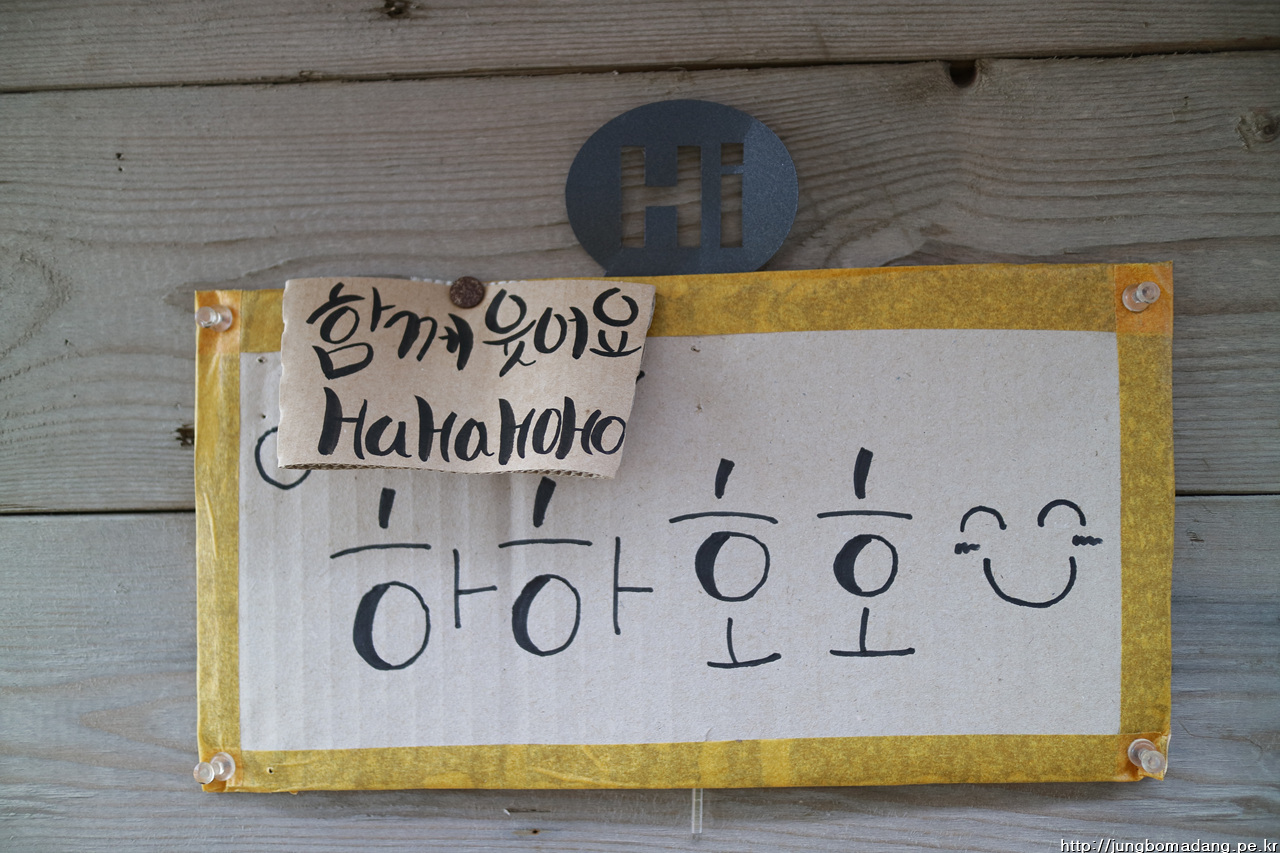 Hi
함께 웃어요
HaHaHoHo
하하호호
http://jungbomadang.pe.kr